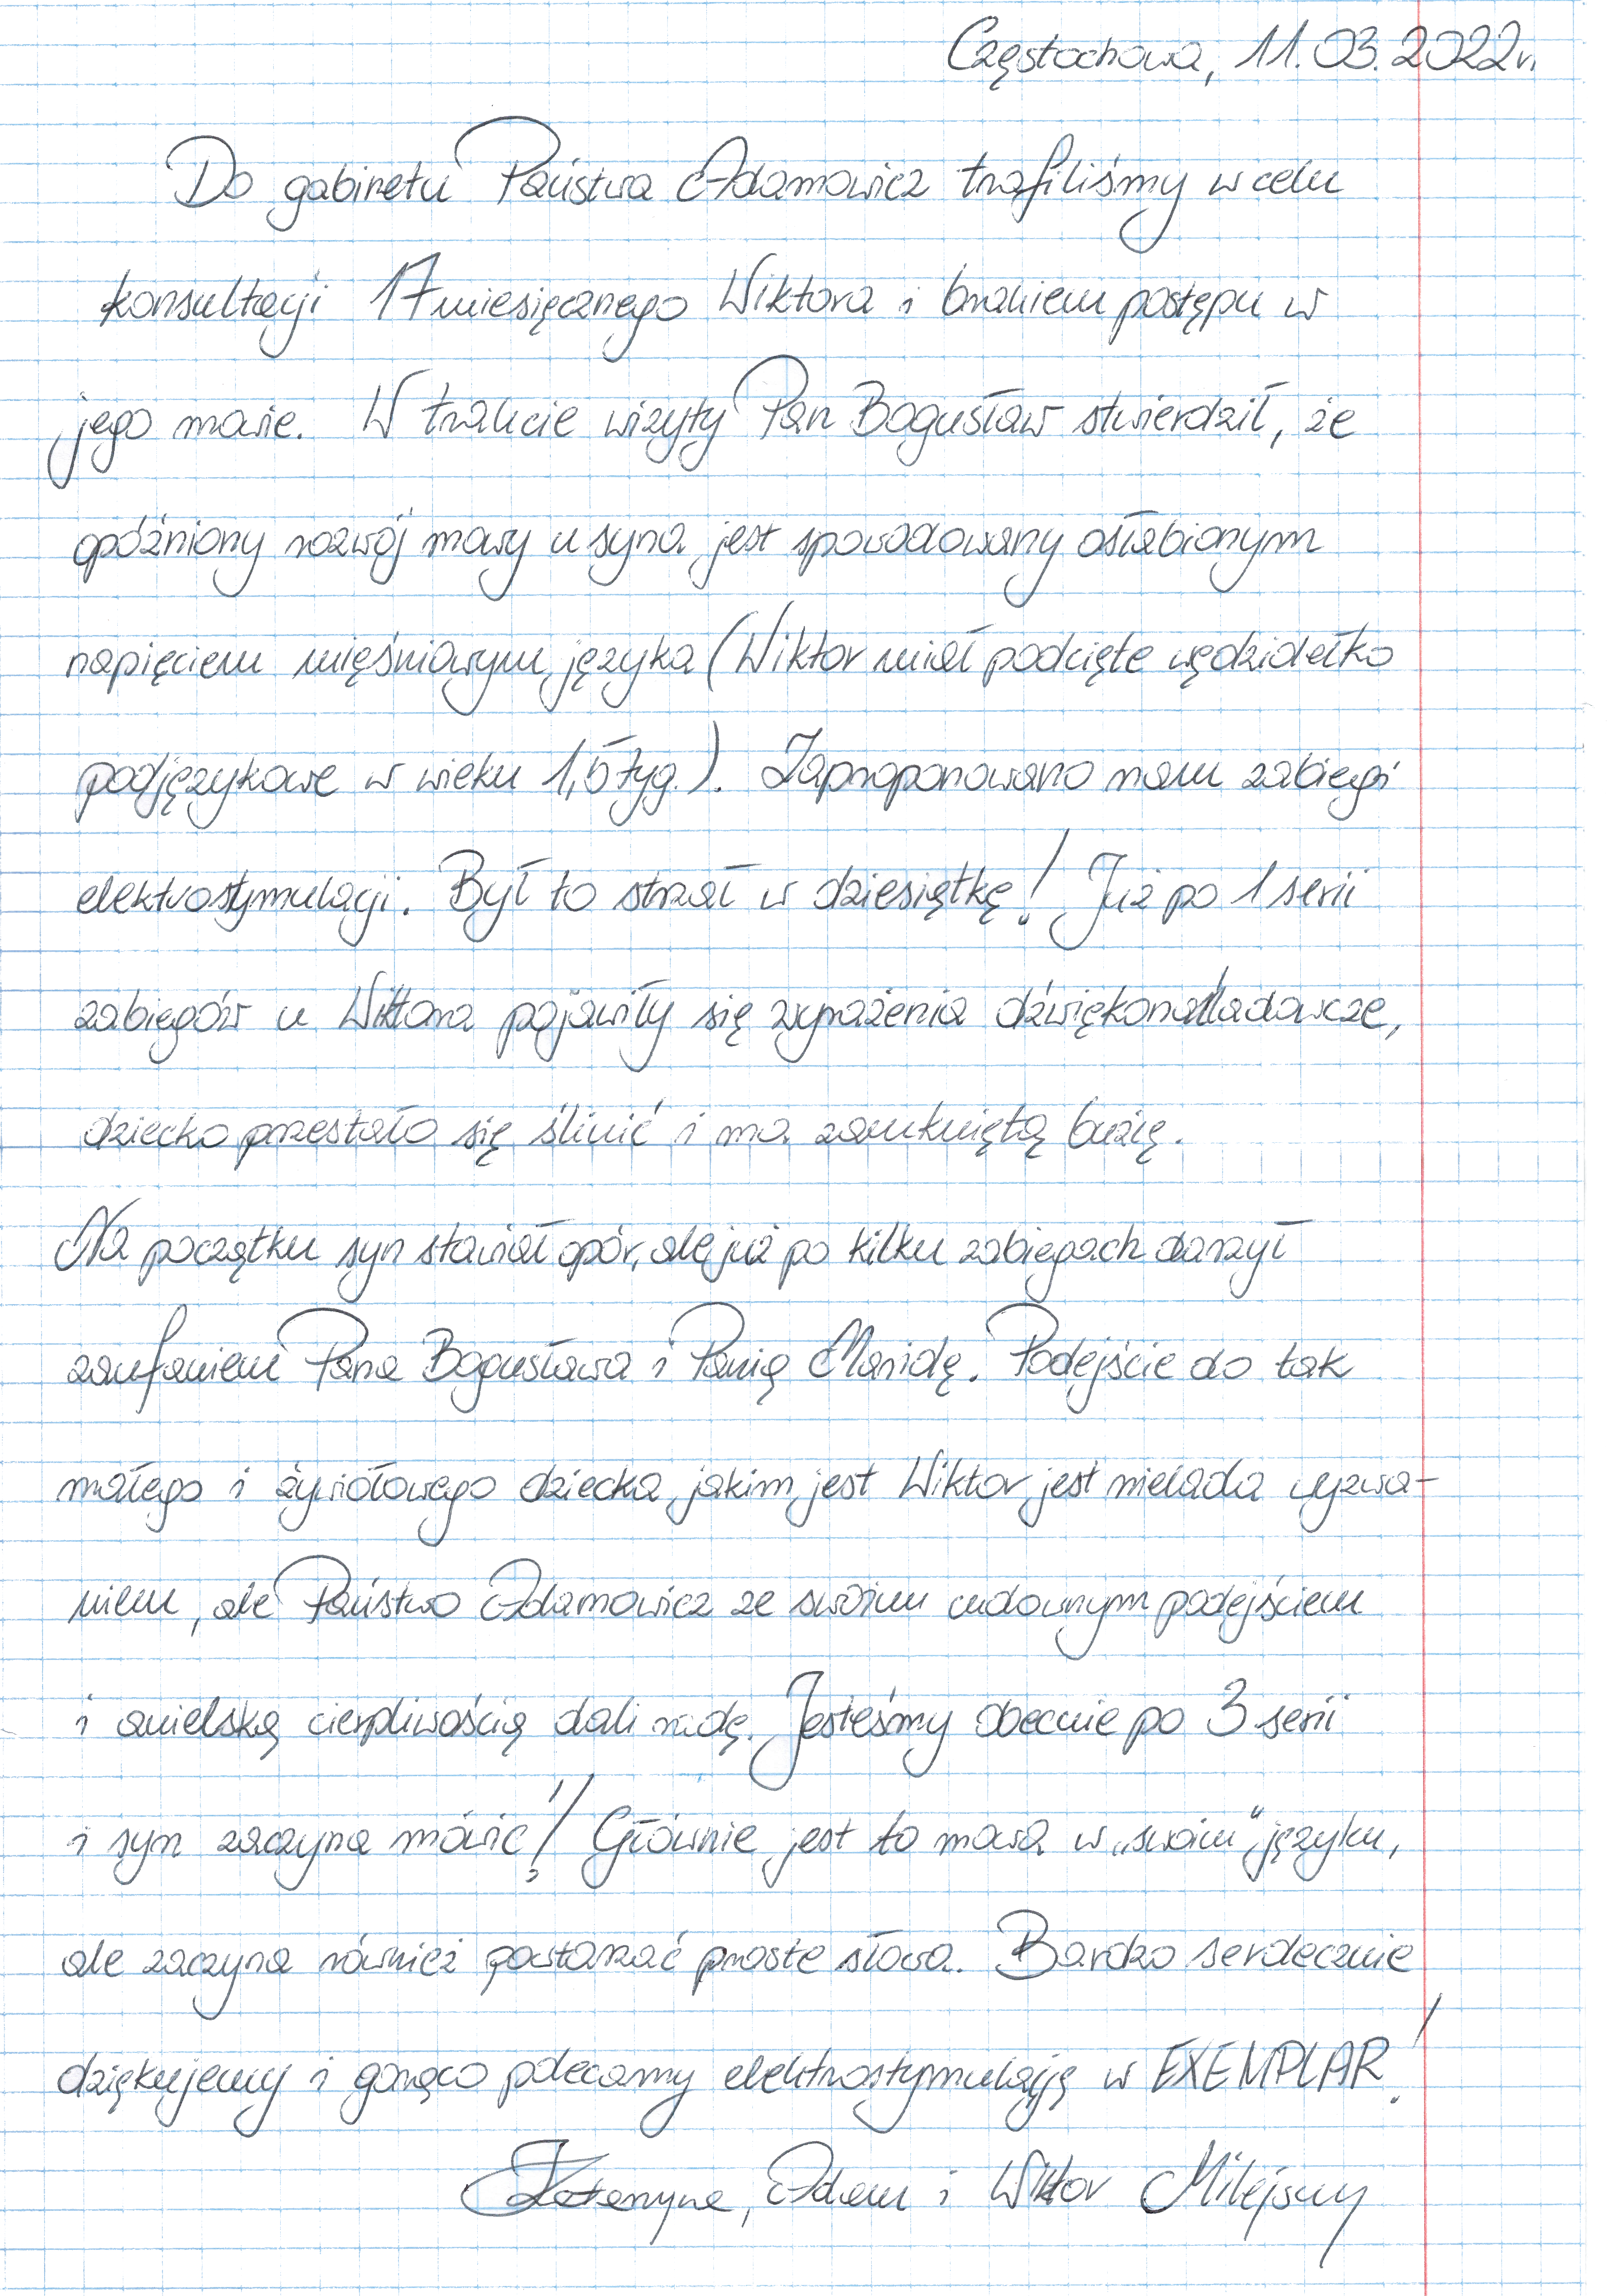 Częstochowa, 11.03.2022r.
Do gabinetu Państwa Adamowicz trafiliśmy w celu
konsultacji 17miesięcznego Wiktora i brakiem postępu w
jego mowie. W trakcie wizyty Pan Bogusław stwierdził, że
opóźniony rozwój mowy u syna jest spowodowany osłabionym
napięciem mięśniowym języka (Wiktor miał podcięte wędzidełko
podjęzykowe w wieku 1,5 tyg.). Zaproponowano nam zabiegi
elektrostymulacji. Był to strzał w dziesiątkę! Już po 1 serii
zabiegów u Wiktora pojawiły się wyrażenia dźwiękonaśladowcze,
dziecko przestało się ślinić i ma zamkniętą buzię.
Na początku syn stawiał opór, ale już po kilku zabiegach darzył
zaufaniem Pana Bogusława i Panią Maridę. Podejście do tak
małego i żywiołowego dziecka jakim jest Wiktor jest nielada wyzwa-
niem, ale Państwo Adamowicz ze swoim cudownym podejściem
i anielską cierpliwością dali radę. Jesteśmy obecnie po 3 serii
i syn zaczyna mówić! Głównie jest to mowa w „swoim" języku,
ale zaczyna również powtarzać proste słowa. Bardzo serdecznie
dziękujemy i gorąco polecamy elektrostymulację w EXEMPLAR!
Katarzyna, Adam i Wiktor Milejscy